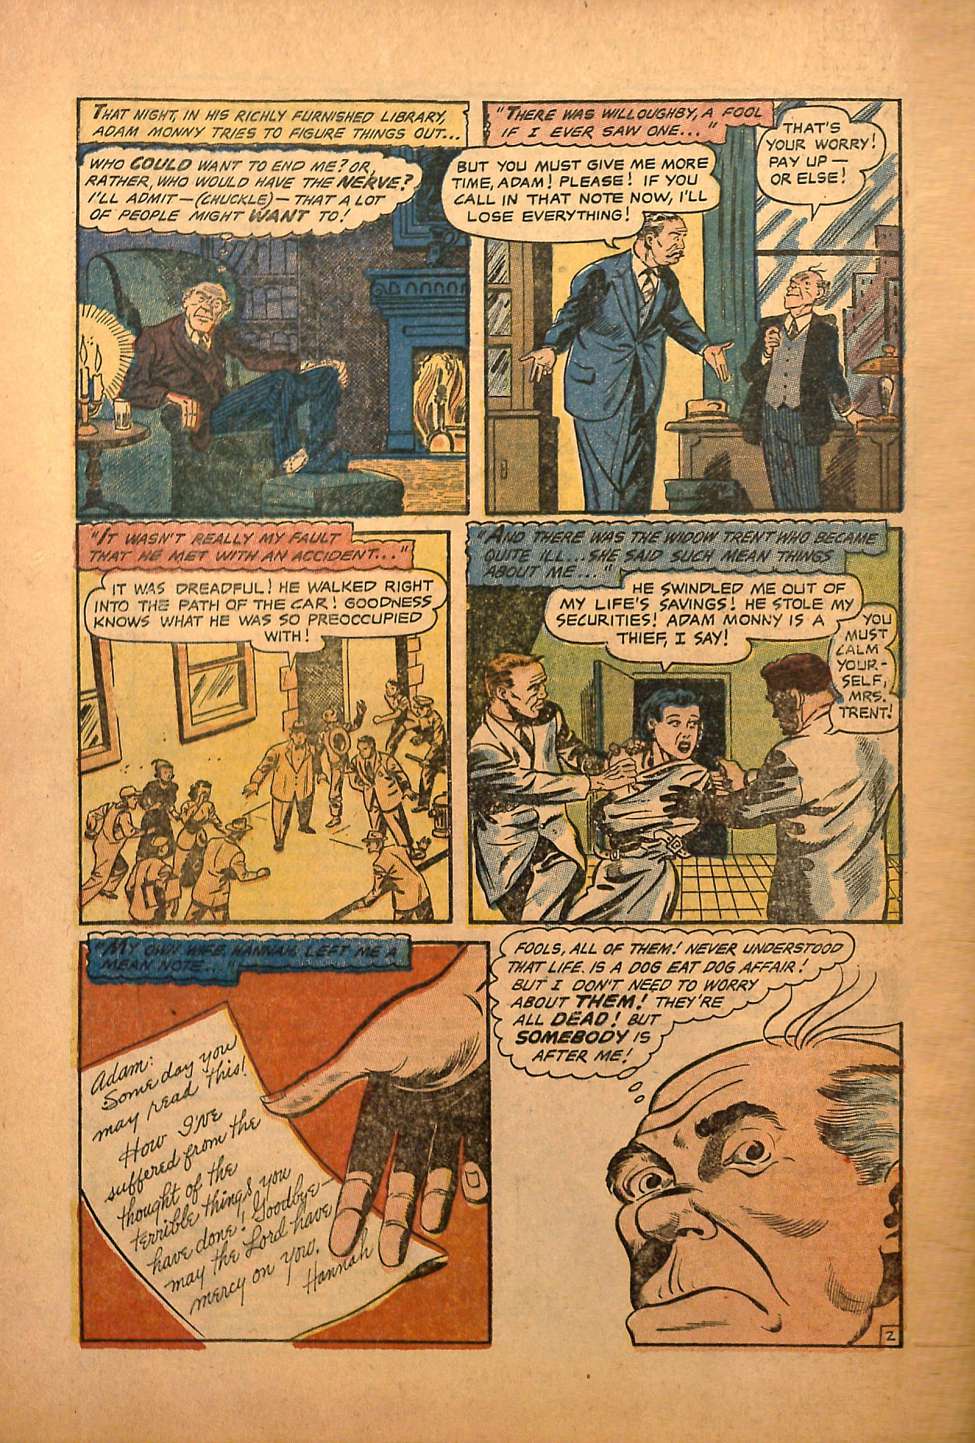 THAT NIGHT, IN HIS RICHLY FURNISHED LIBRARY,
ADAM MONNY TRIES TO FIGURE THINGS OUT...
WHO COULD WANT TO END ME? OR,
RATHER, WHO WOULD HAVE THE NERVE?
I'LL ADMIT—(CHUCKLE)—THAT A LOT
OF PEOPLE MIGHT WANT TO!
"THERE WAS WILLOUGHBY, A FOOL
IF I EVER SAW ONE..."
BUT YOU MUST GIVE ME MORE
TIME, ADAM! PLEASE! IF YOU
CALL IN THAT NOTE NOW, I'LL
LOSE EVERYTHING!
THAT'S
YOUR WORRY!
PAY UP—
OR ELSE!
"IT WASN'T REALLY MY FAULT
THAT HE MET WITH AN ACCIDENT..."
IT WAS DREADFUL! HE WALKED RIGHT
INTO THE PATH OF THE CAR! GOODNESS
KNOWS WHAT HE WAS SO PREOCCUPIED
WITH!
"AND THERE WAS THE WIDOW TRENT WHO BECAME
QUITE ILL...SHE SAID SUCH MEAN THINGS
ABOUT ME..."
HE SWINDLED ME OUT OF
MY LIFE'S SAVINGS! HE STOLE MY
SECURITIES! ADAM MONNY IS A
THIEF, I SAY!
YOU
MUST
CALM
YOUR-
SELF,
MRS.
TRENT!
"MY OWN WIFE, HANNAH, LEFT ME A
MEAN NOTE...
Adam:
Some day you
may read this!
How I've
suffered from the
thought of the
terrible things you
have done! Goodbye—
may the Lord have
mercy on you.
Hannah
FOOLS, ALL OF THEM! NEVER UNDERSTOOD
THAT LIFE IS A DOG EAT DOG AFFAIR!
BUT I DON'T NEED TO WORRY
ABOUT THEM! THEY'RE
ALL DEAD! BUT
SOMEBODY IS
AFTER ME!
2